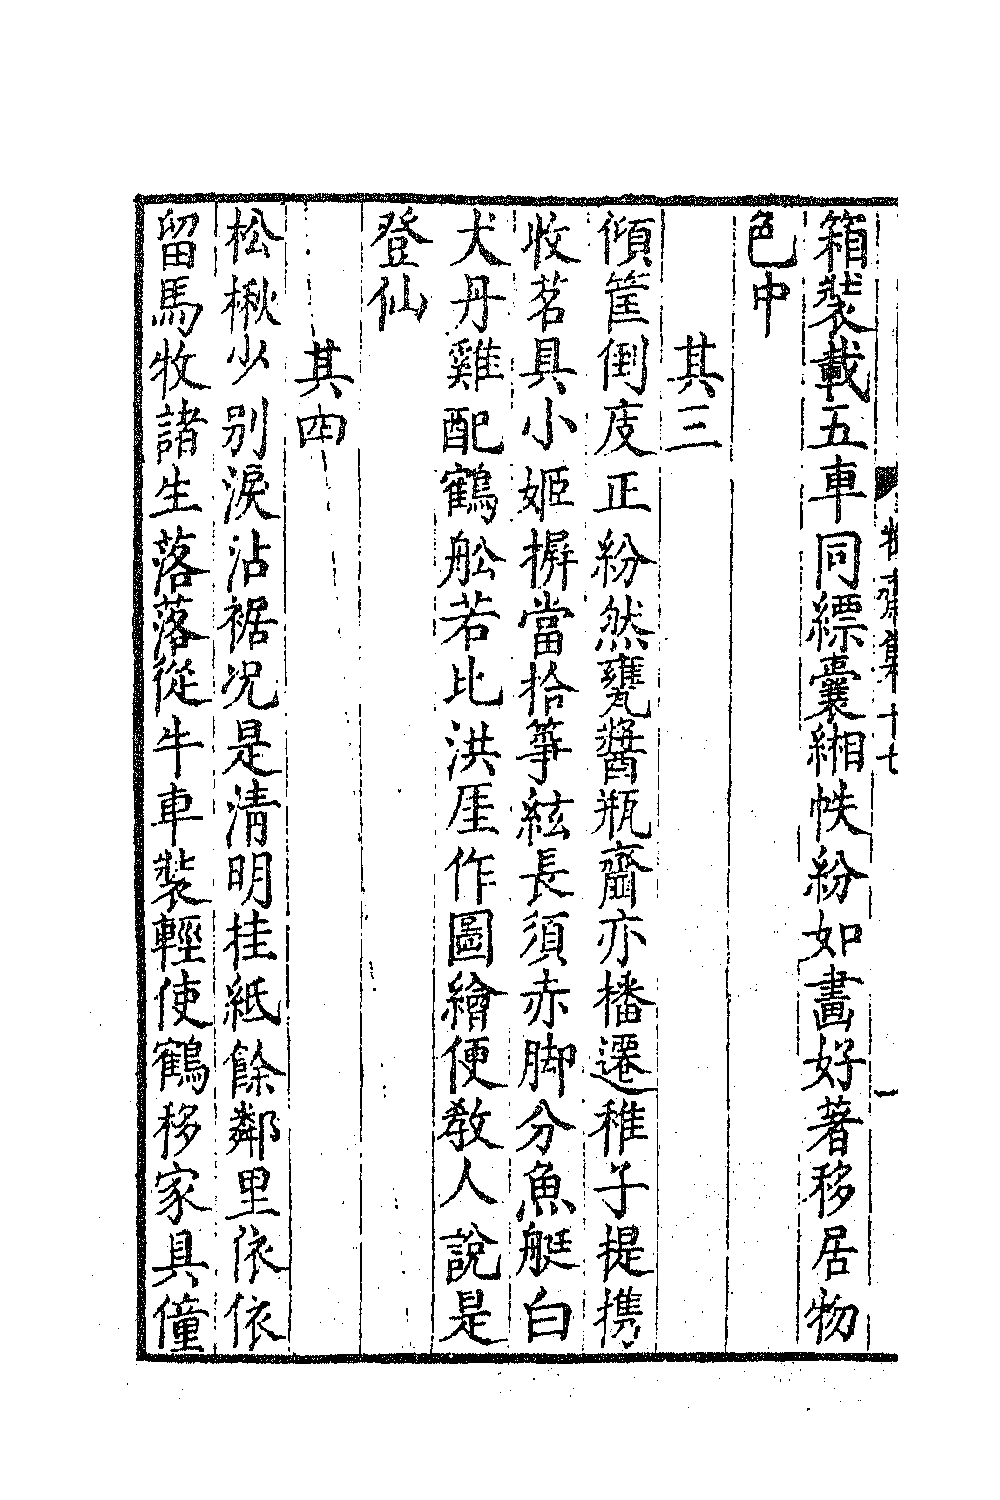 箱裝載五車同縹囊緗帙紛如畫好著移居物
色中
其三
傾筐倒庋正紛然甕醬瓶齏亦播遷稚子提携
收茗具小姬摒當拾箏絃長須赤脚分魚艇白
犬丹雞配鶴舩若比洪厓作圖繪便敎人說是
登仙
其四
松楸少别淚沾裾况是清明挂紙餘鄰里依依
留馬牧諸生落落從牛車裝輕使鶴移家具僮